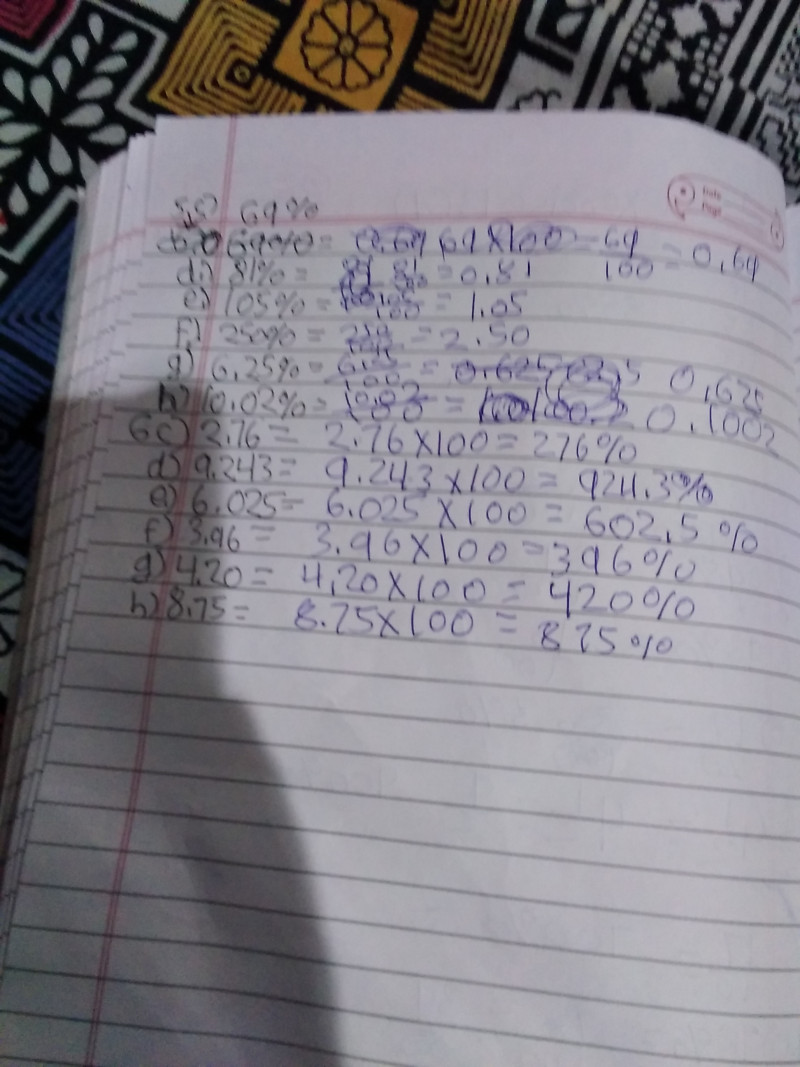 Date
Page
5.c) 69%
69% = 69 × 100 = 69/100 = 0.69
d) 81% = 81/100 = 0.81
e) 105% = 105/100 = 1.05
f) 250% = 250/100 = 2.50
g) 6.25% = 6.25/100 = 0.625
h) 10.02% = 10.02/100 = 0.1002
6c) 2.76 = 2.76 × 100 = 276%
d) 9.243 = 9.243 × 100 = 924.3%
e) 6.025 = 6.025 × 100 = 602.5%
f) 3.96 = 3.96 × 100 = 396%
g) 4.20 = 4.20 × 100 = 420%
h) 8.75 = 8.75 × 100 = 875%